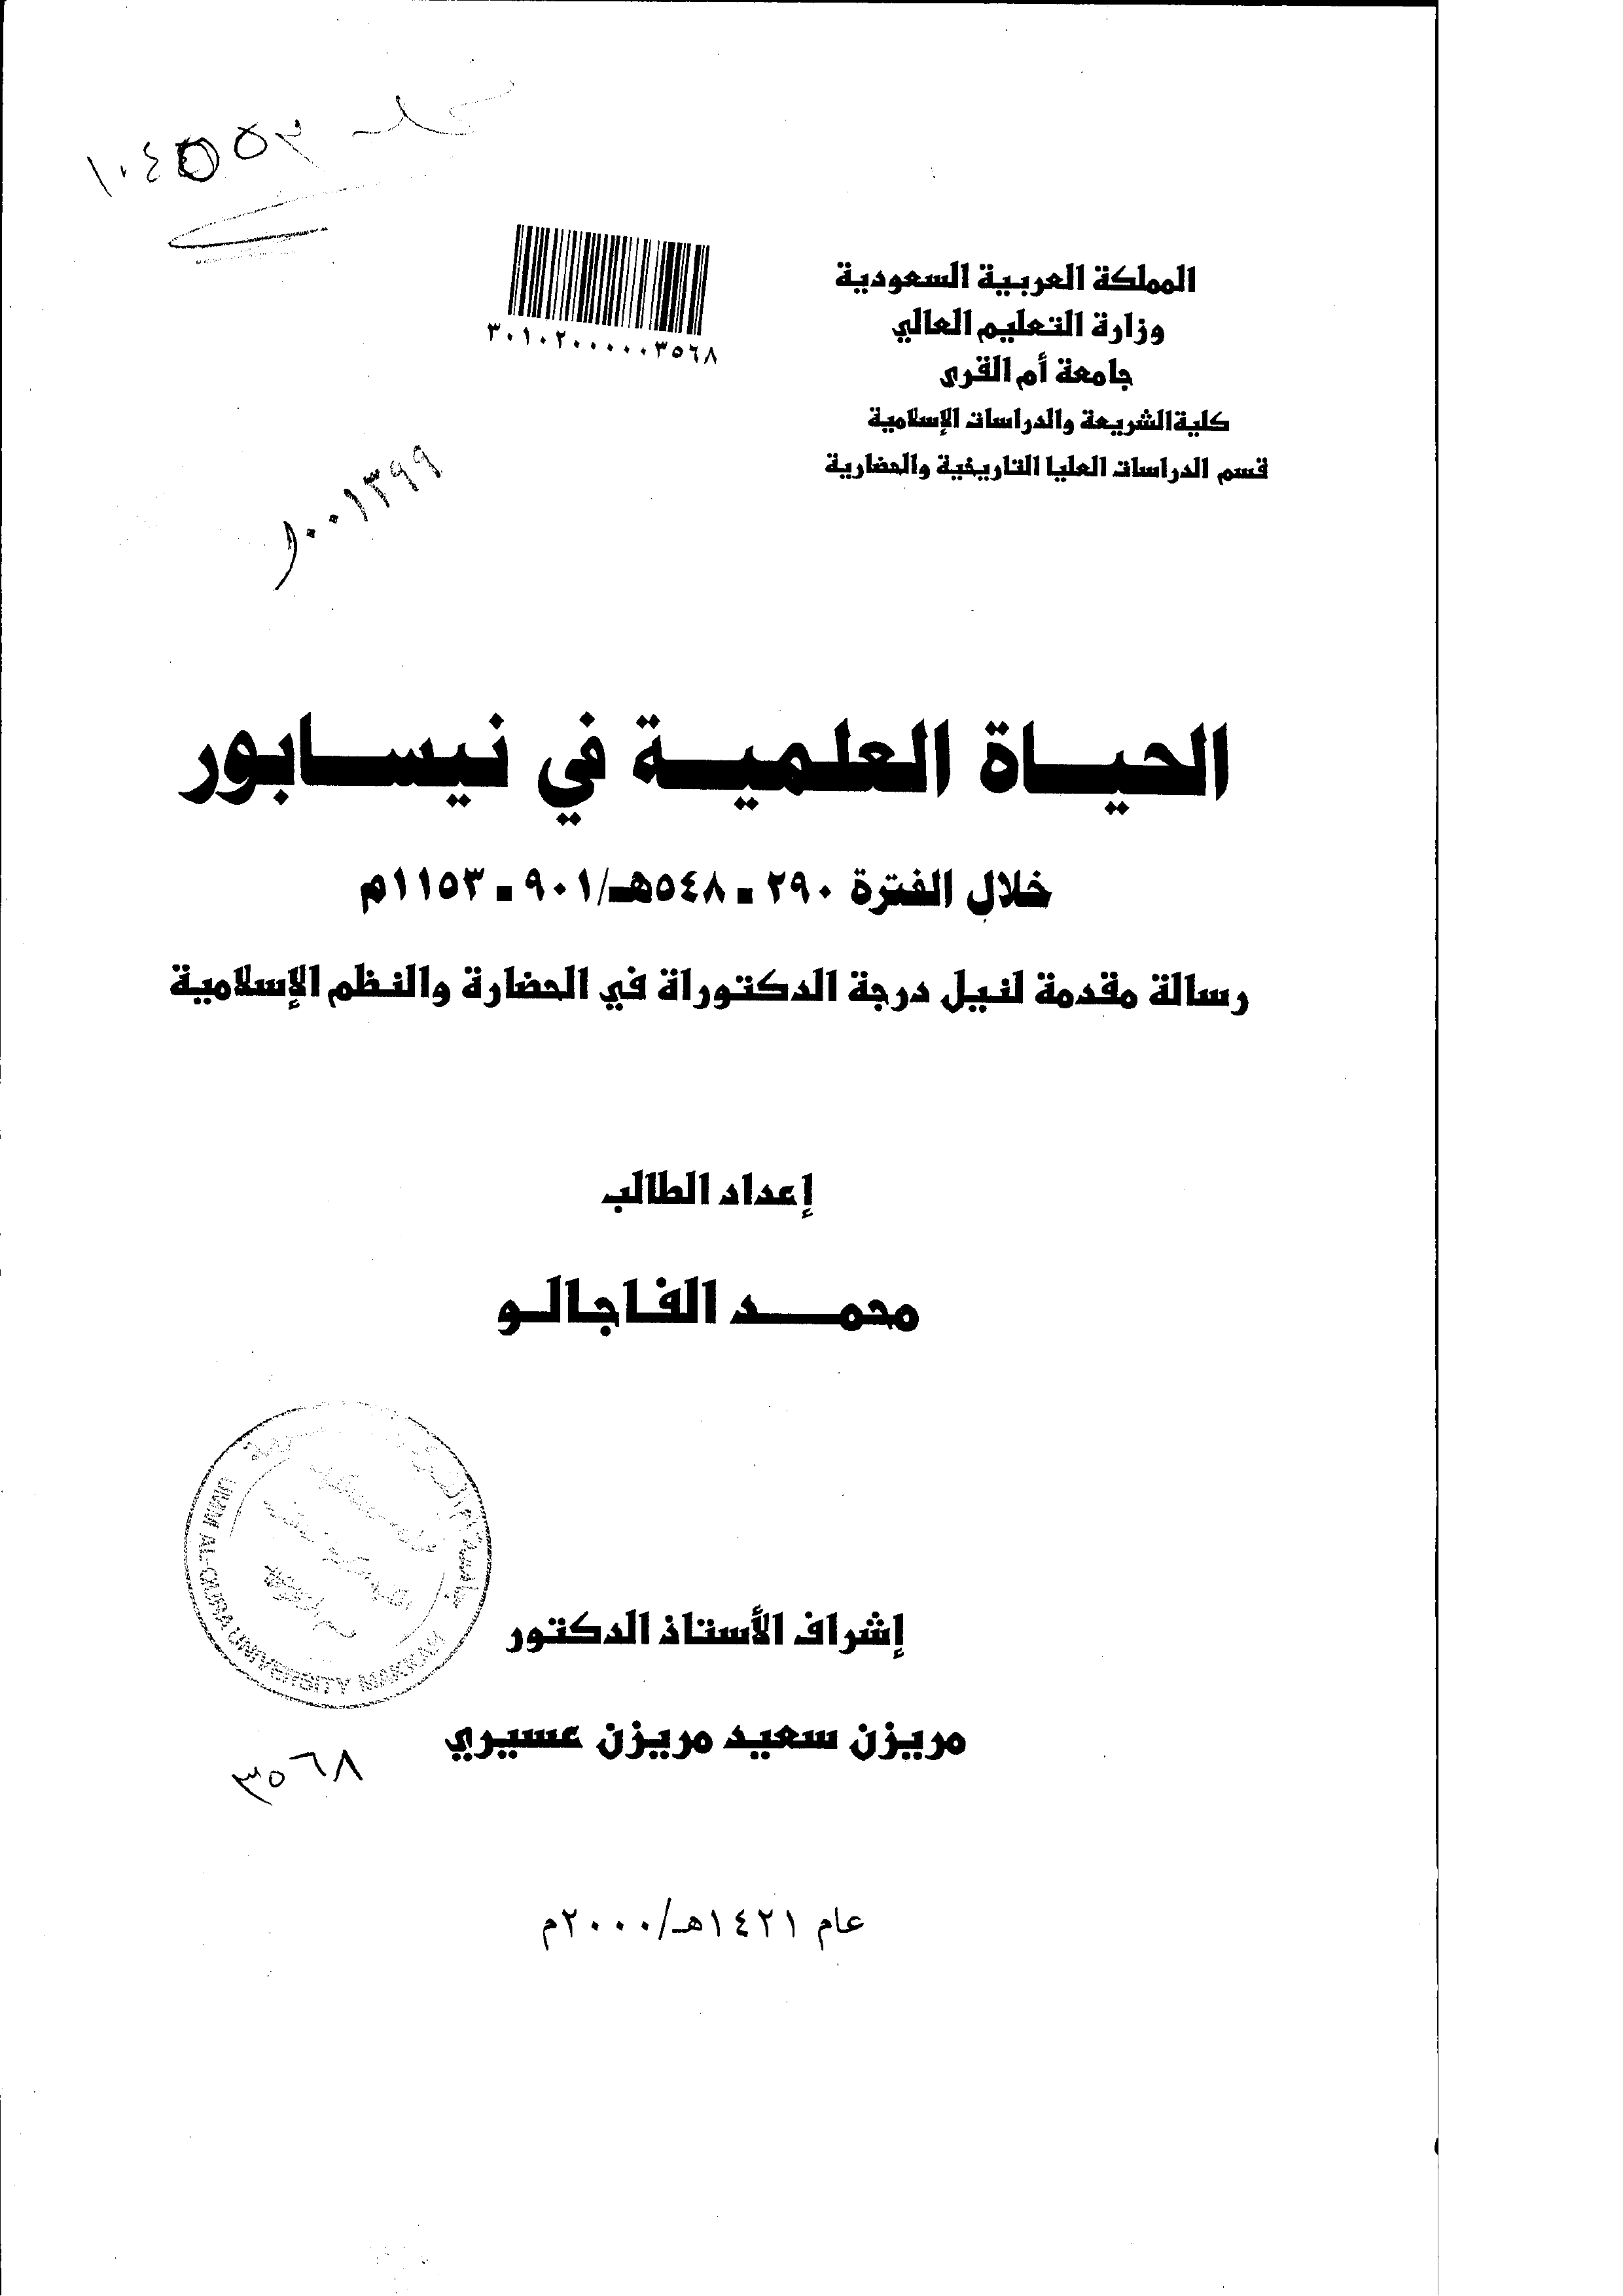 ١٠٤٥٥٣
المملكة العربية السعودية
وزارة التعليم العالي
جامعة أم القرى
كلية الشريعة والدراسات الإسلامية
قسم الدراسات العليا التاريخية والحضارية
٣٠١٠٢٠٠٠٠٠٣٥٦٨
١٠٠١٣٩٩
الحياة العلمية في نيسابور
خلال الفترة ٢٩٠ - ٥٤٨هـ/٩٠١ - ١١٥٣م
رسالة مقدمة لنيل درجة الدكتوراة في الحضارة والنظم الإسلامية
إعداد الطالب
محمد الفاجالو
UMM AL-QURA UNIVERSITY MAKKAH
إشراف الأستاذ الدكتور
مريزن سعيد مريزن عسيري
٣٥٦٨
عام ١٤٢١هـ/٢٠٠٠م